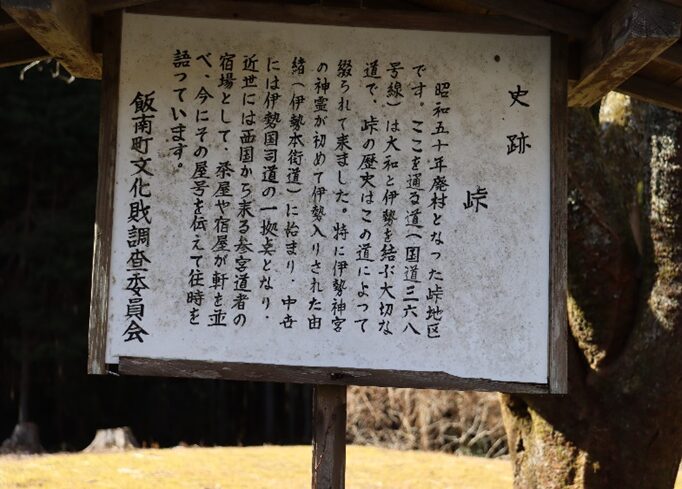 史跡
峠
昭和五十年廃村となった峠地区
です。ここを通る道(国道三六八
号線)は大和と伊勢を結ぶ大切な
道で、峠の歴史はこの道によって
綴られて来ました。特に伊勢神宮
の神霊が初めて伊勢入りされた由
緒(伊勢本街道)に始まり、中世
には伊勢国司道の一拠点となり、
近世には西国から来る参宮道者の
宿場として、茶屋や宿屋が軒を並
べ、今にその屋号を伝えて往時を
語っています。
飯南町文化財調査委員会